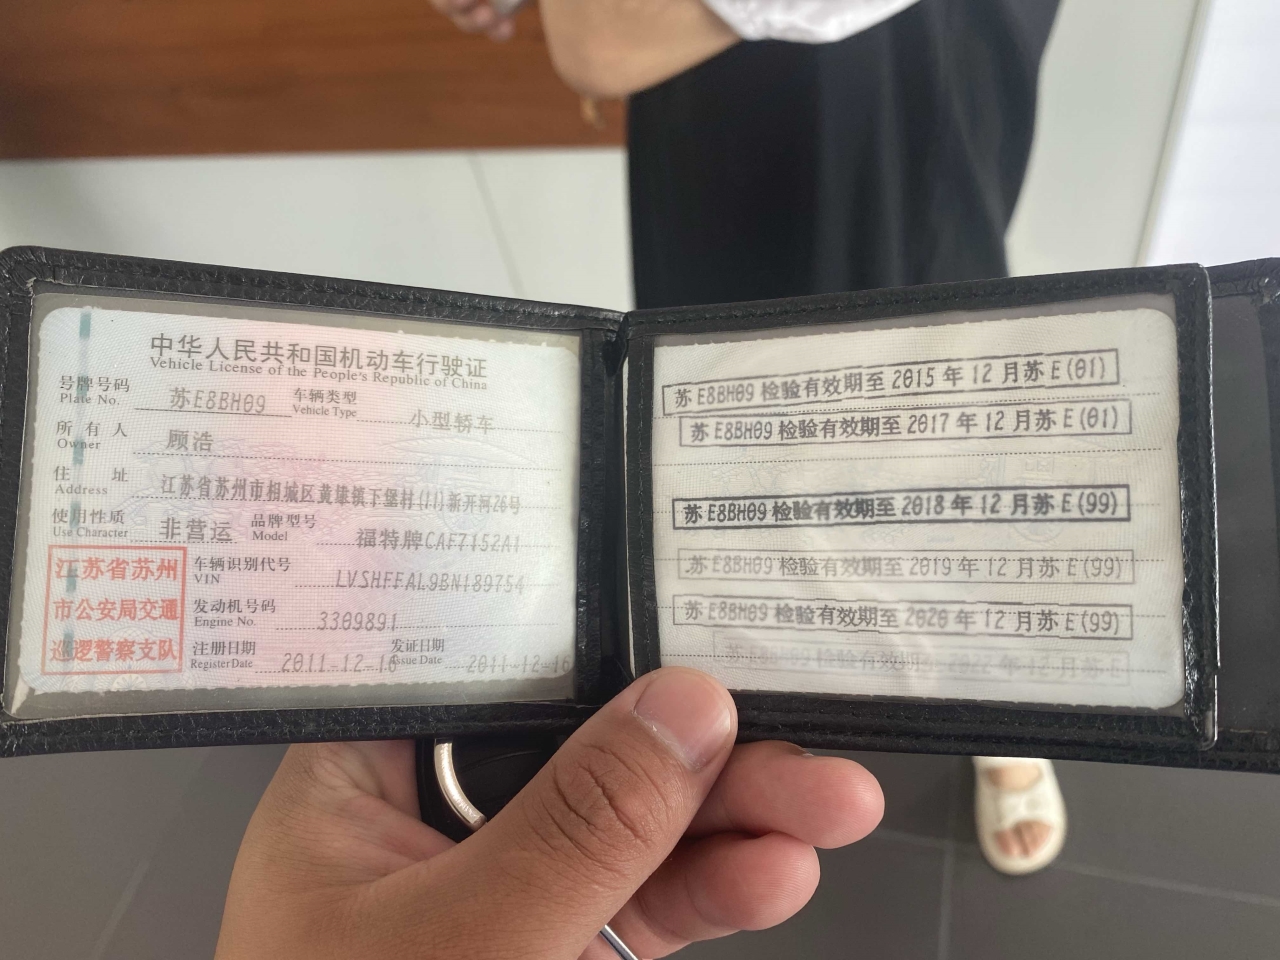 中华人民共和国机动车行驶证
Vehicle License of the People's Republic of China
号牌号码 苏E8BH09 车辆类型 小型轿车
Plate No. Vehicle Type
所有人 顾浩
Owner
住址 江苏省苏州市相城区黄埭镇下堡村(11)新开河26号
Address
使用性质 非营运 品牌型号 福特牌CAF7152A1
Use Character Model
江苏省苏州
市公安局交通
巡逻警察支队
车辆识别代号 LVSHFFAL9BN189754
VIN
发动机号码 3309891
Engine No.
注册日期 2011-12-16 发证日期 2011-12-16
Register Date Issue Date
苏E8BH09 检验有效期至 2015 年 12 月苏 E(01)
苏E8BH09 检验有效期至 2017 年 12 月苏 E(01)
苏E8BH09 检验有效期至 2018 年 12 月苏 E(99)
苏E8BH09 检验有效期至 2019 年 12 月苏 E(99)
苏E8BH09 检验有效期至 2020 年 12 月苏 E(99)
苏E8BH09 检验有效期至 2022 年 12 月苏 E